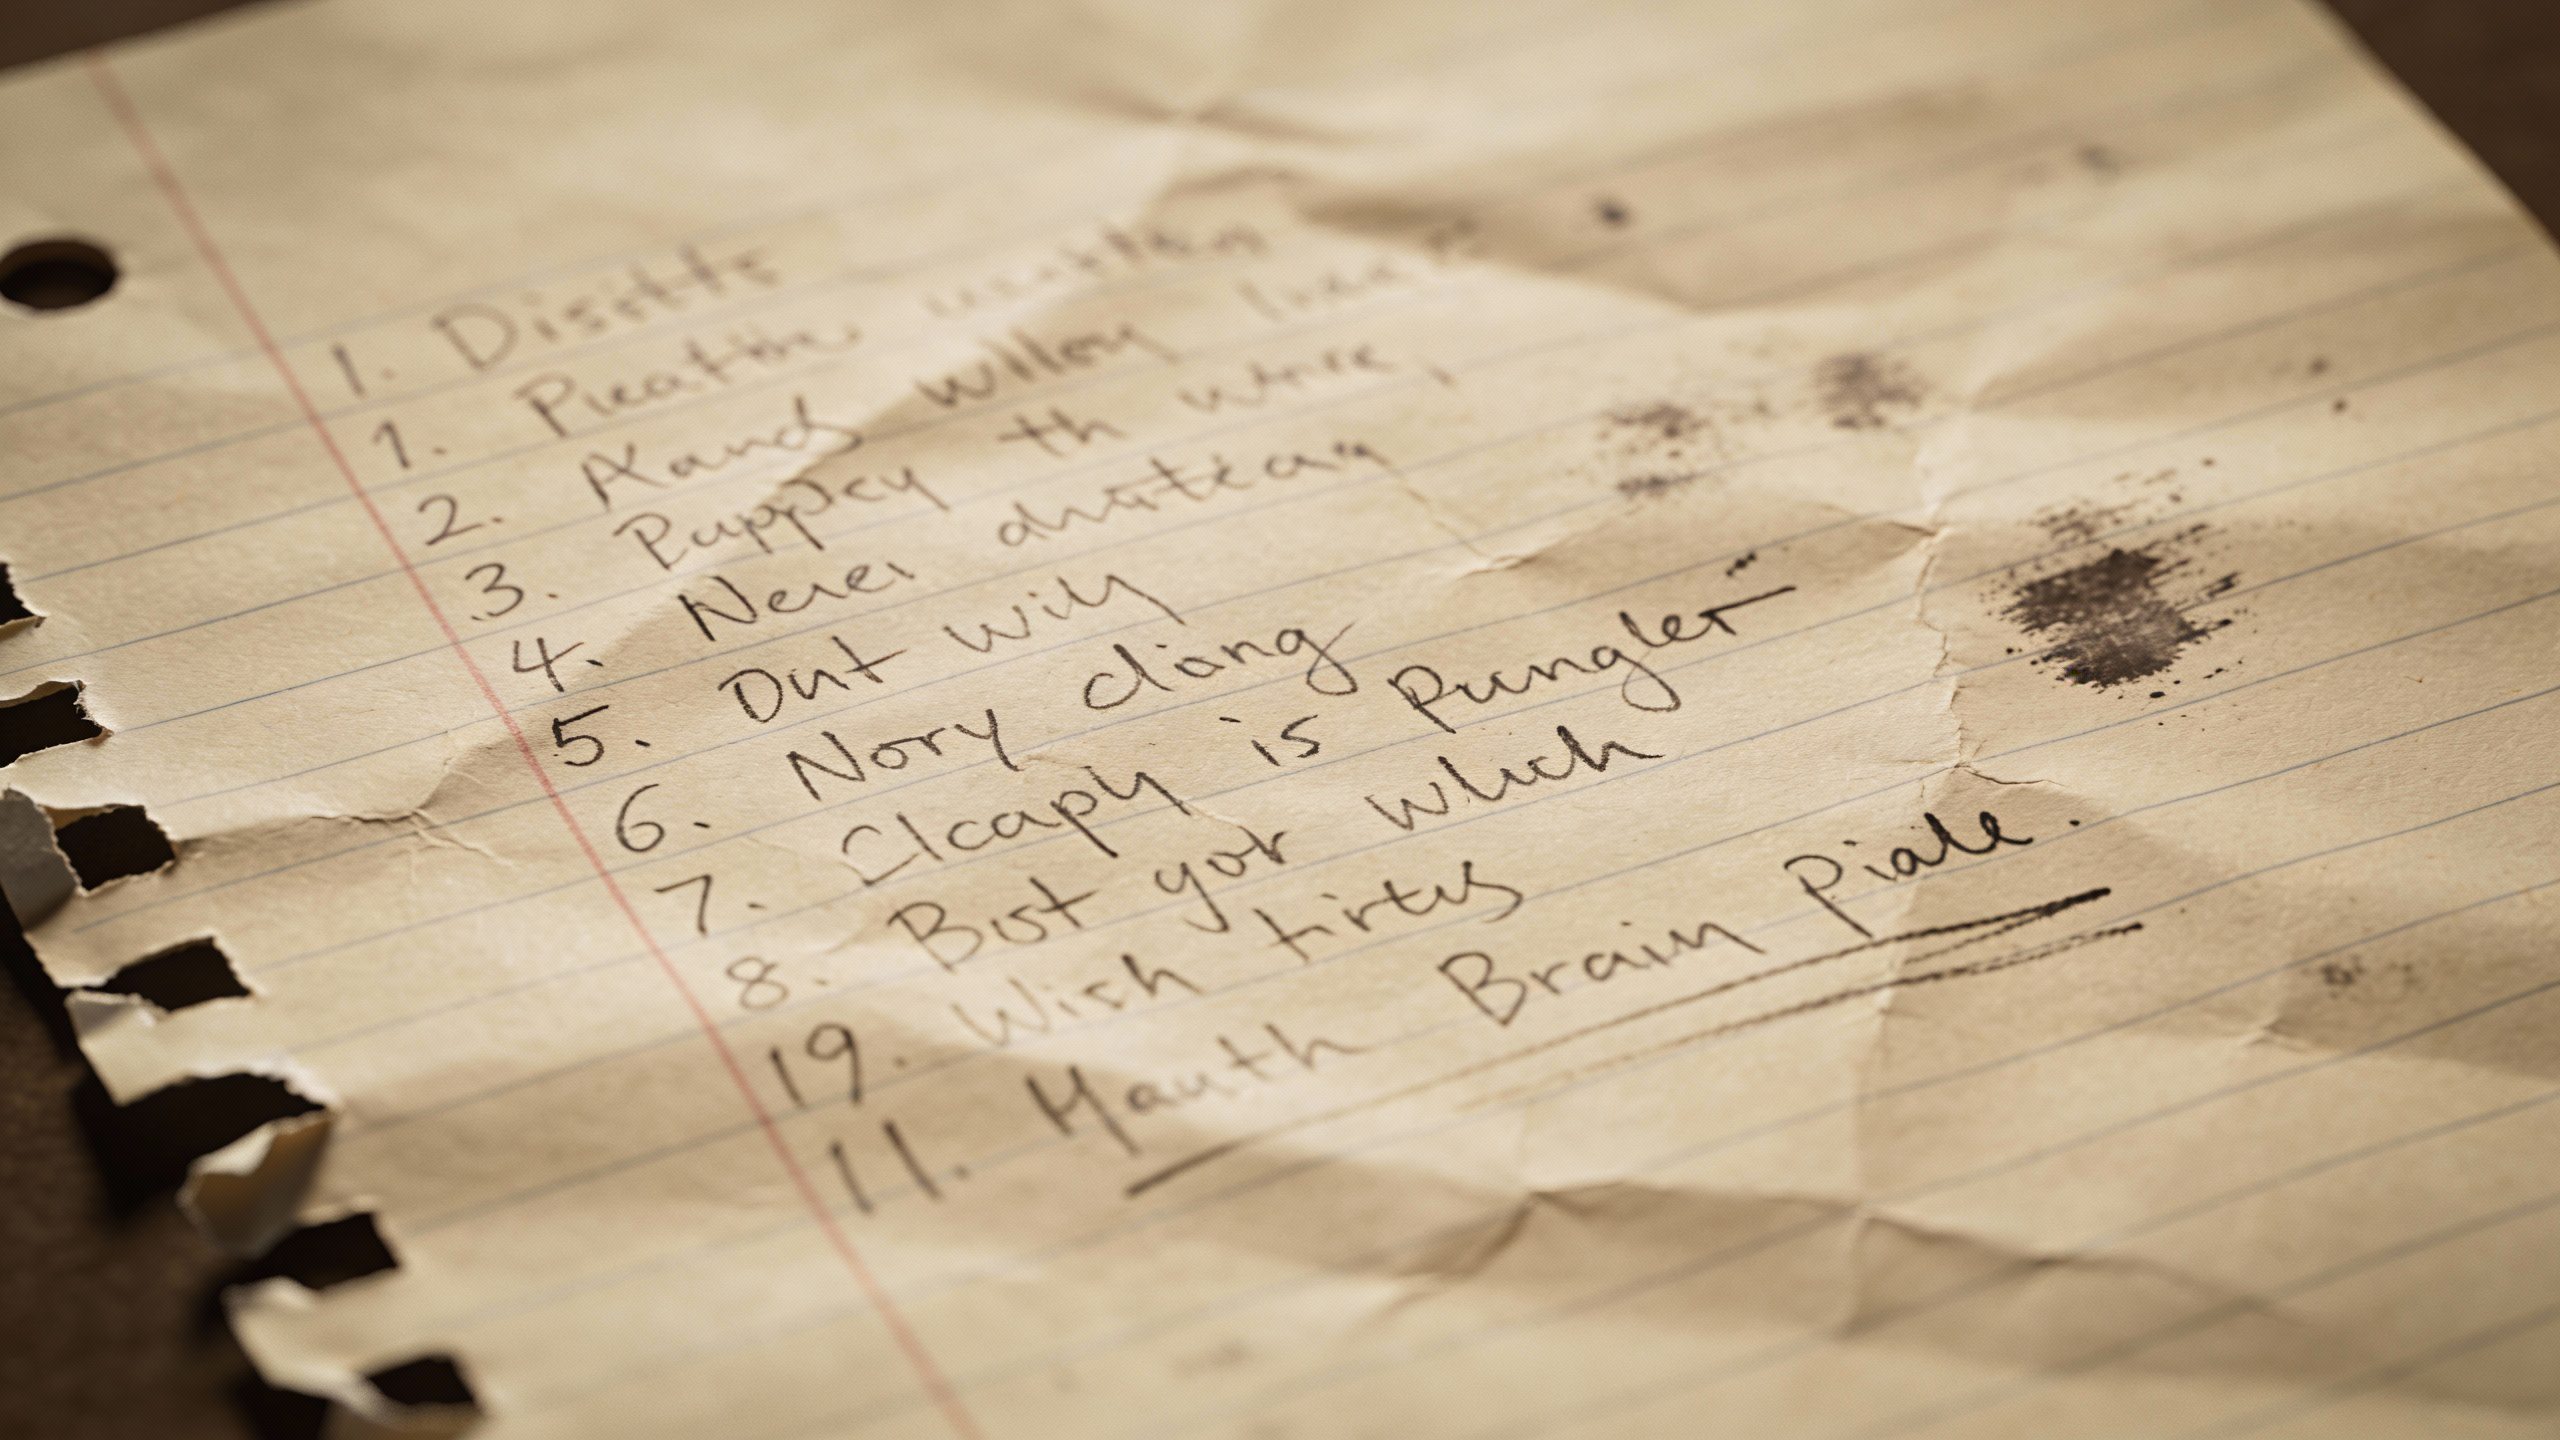 1. Disitts
1. Pieattie
2. Aands willey
3. Puppey th wire,
4. Nerei
5. Dut wily
6. Nory diang
7. Elcapy is pungler
8. But yor which
19. Wish tirtus
11. Hauth Brain Piale.